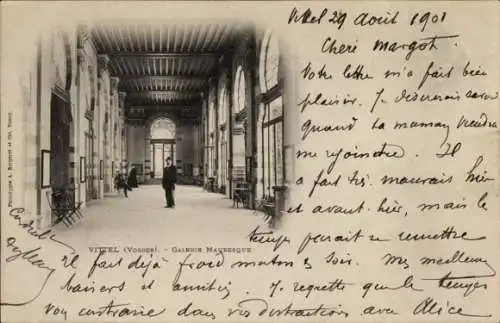 Vittel 29 Août 1901
Chère Margot.
Votre lettre m'a fait bien
plaisir. Je désirerais savoir
quand ta maman viendra
me rejoindre. Il
a fait très mauvais hier
et avant-hier, mais le
temps paraît se remettre
Il fait déjà froid matin & soir. Mes meilleurs
baisers et amitiés. Je regrette que le temps
vous contrarie dans vos distractions avec Alice
VITTEL (Vosges). - GALERIE MAURESQUE
Phototypie A. Bergeret et Cie, Nancy.